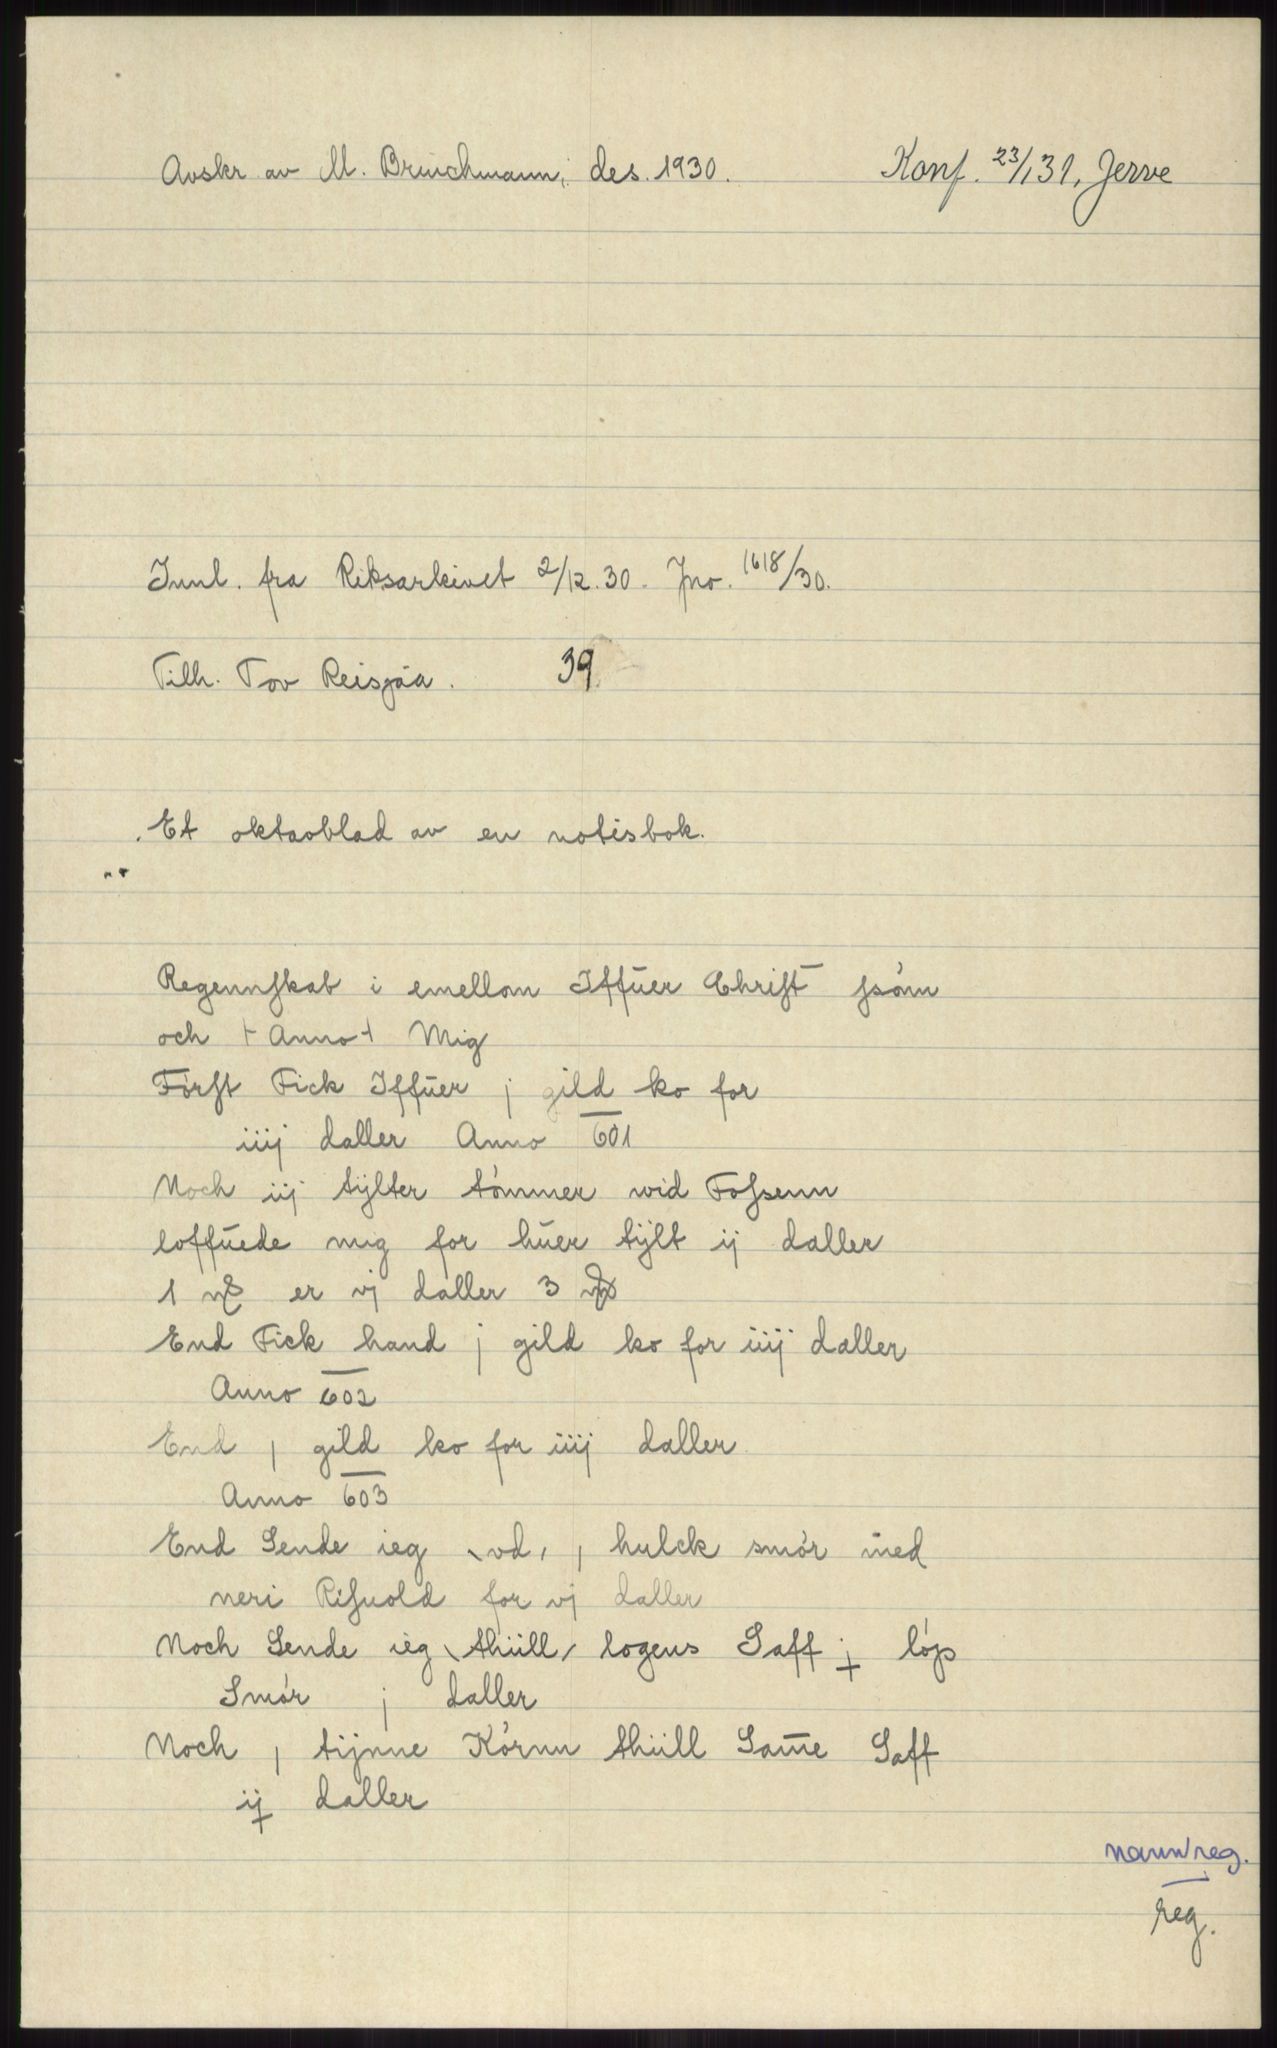 Avskr. av M. Bruichmann, des. 1930.
Konf. 23/1 31, Jerve
Innl. fra Riksarkivet 2/12. 30 - Jno. 1618/30.
Tilh. Tov Reisjåa. 39
Et oktavblad av en notisbok.
Regennskab i emellom Iffŭer Christ̄ ssóm
och ⊢ Anno ⊣ Mig
Fórst Fick Iffŭer j gild ko for
iiij daller Anno 601
Noch iij tÿlter tómmer wid Fossenn
loffŭede mig for hŭer tÿlt ij daller
1 er vj daller 3
End Fick hand j gild ko for iiij daller
Anno 602
End j gild ko for iiij daller
Anno 603
End Sende ieg \vd/ j hulck smór med
neri Risuold for vj daller
Noch Sende ieg \thiill/ logens Saff j lóp
Smór j daller
Noch j tijnne Kórnn thiill Sam̄e Saff
ij daller
navn/reg.
reg.